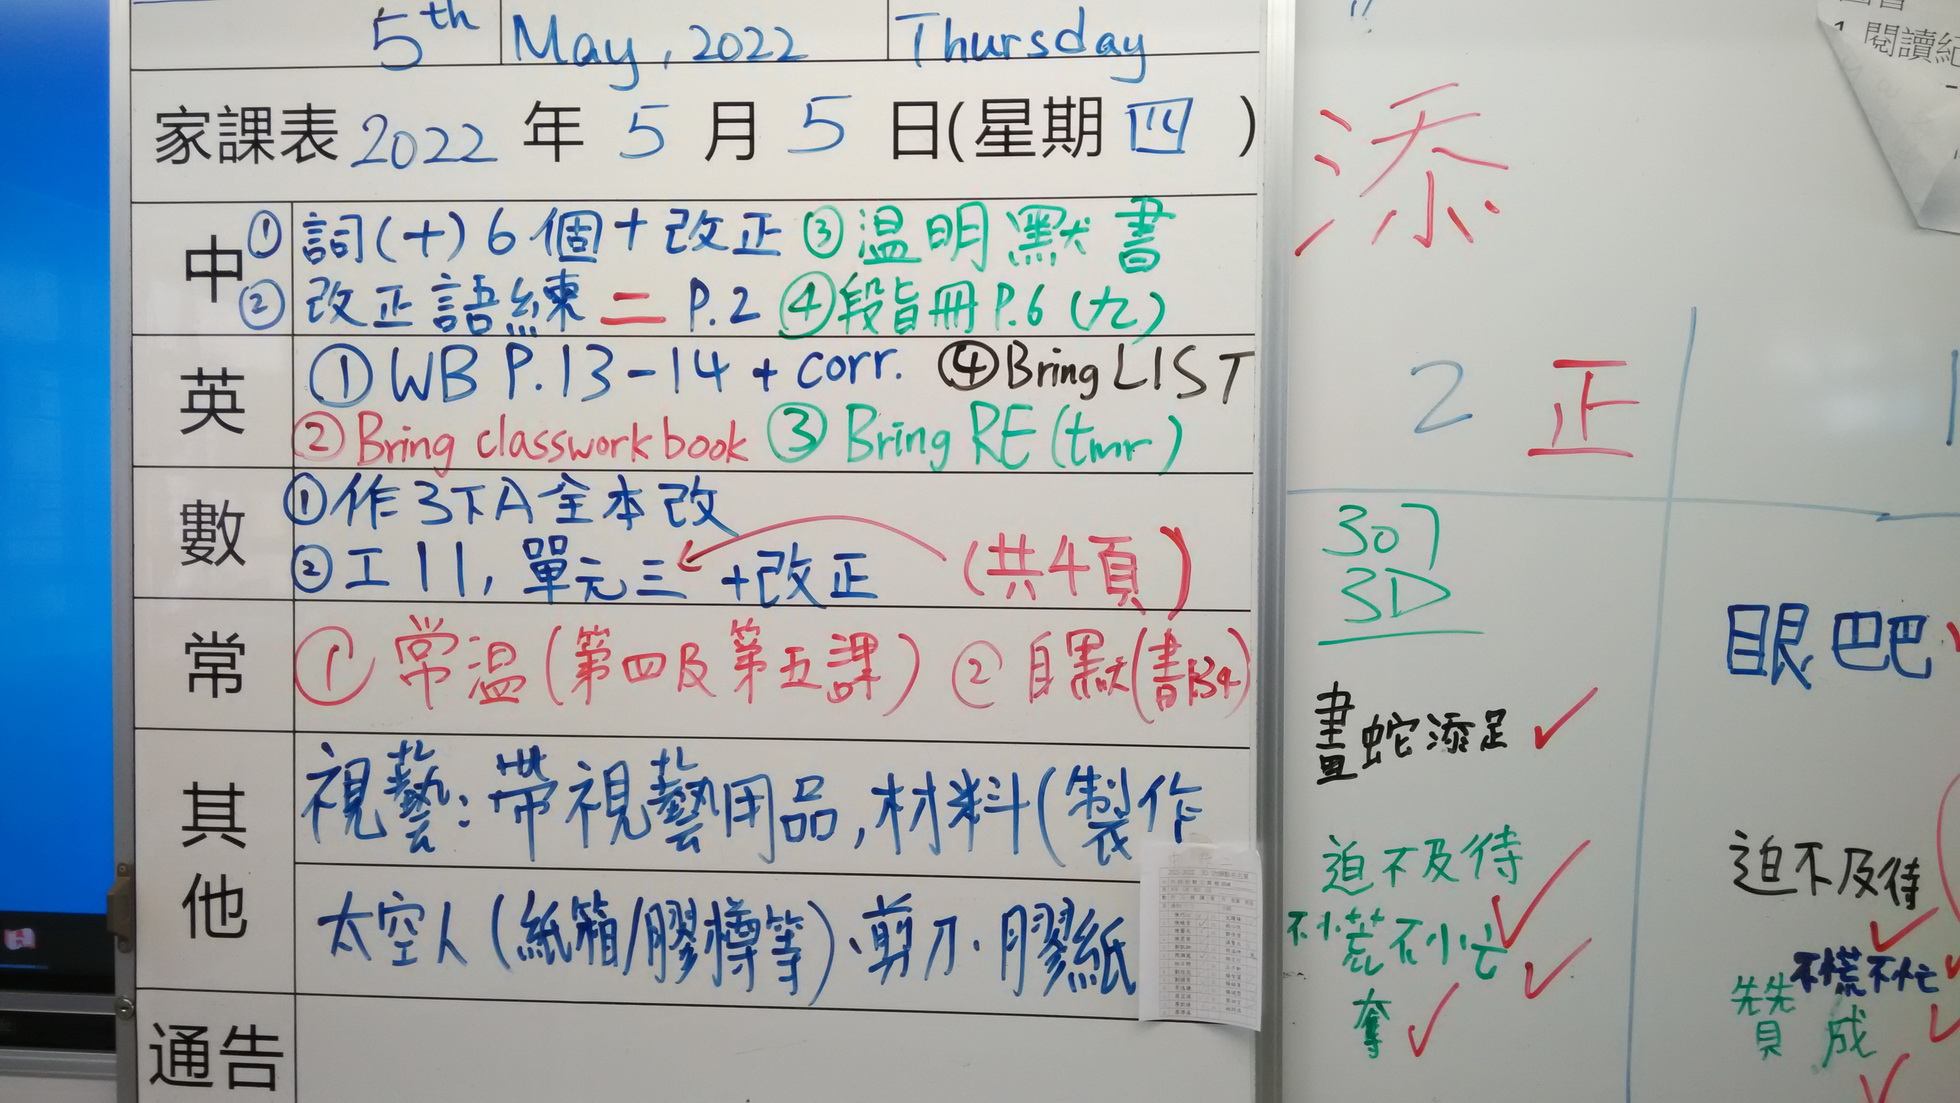 5th May, 2022 Thursday
家課表 2022 年 5 月 5 日(星期 四 )
中
① 詞(十) 6 個 + 改正 ③ 温明默書
② 改正語練二 P.2 ④ 段旨冊 P.6 (九)
英
① WB P.13-14 + corr. ④ Bring LIST
② Bring classwork book ③ Bring RE (tmr)
數
① 作3下A全本改
② 工11, 單元三 +改正 (共4頁)
常
① 常温(第四及第五課) ② 自默(書P.34)
其他
視藝:帶視藝用品,材料(製作
太空人(紙箱/膠樽等)、剪刀、膠紙
通告
添
2 正
307
3D
畫蛇添足
迫不及待
不慌不忙
奪
1. 閱讀紀
眼巴巴
迫不及待
不慌不忙
贊成